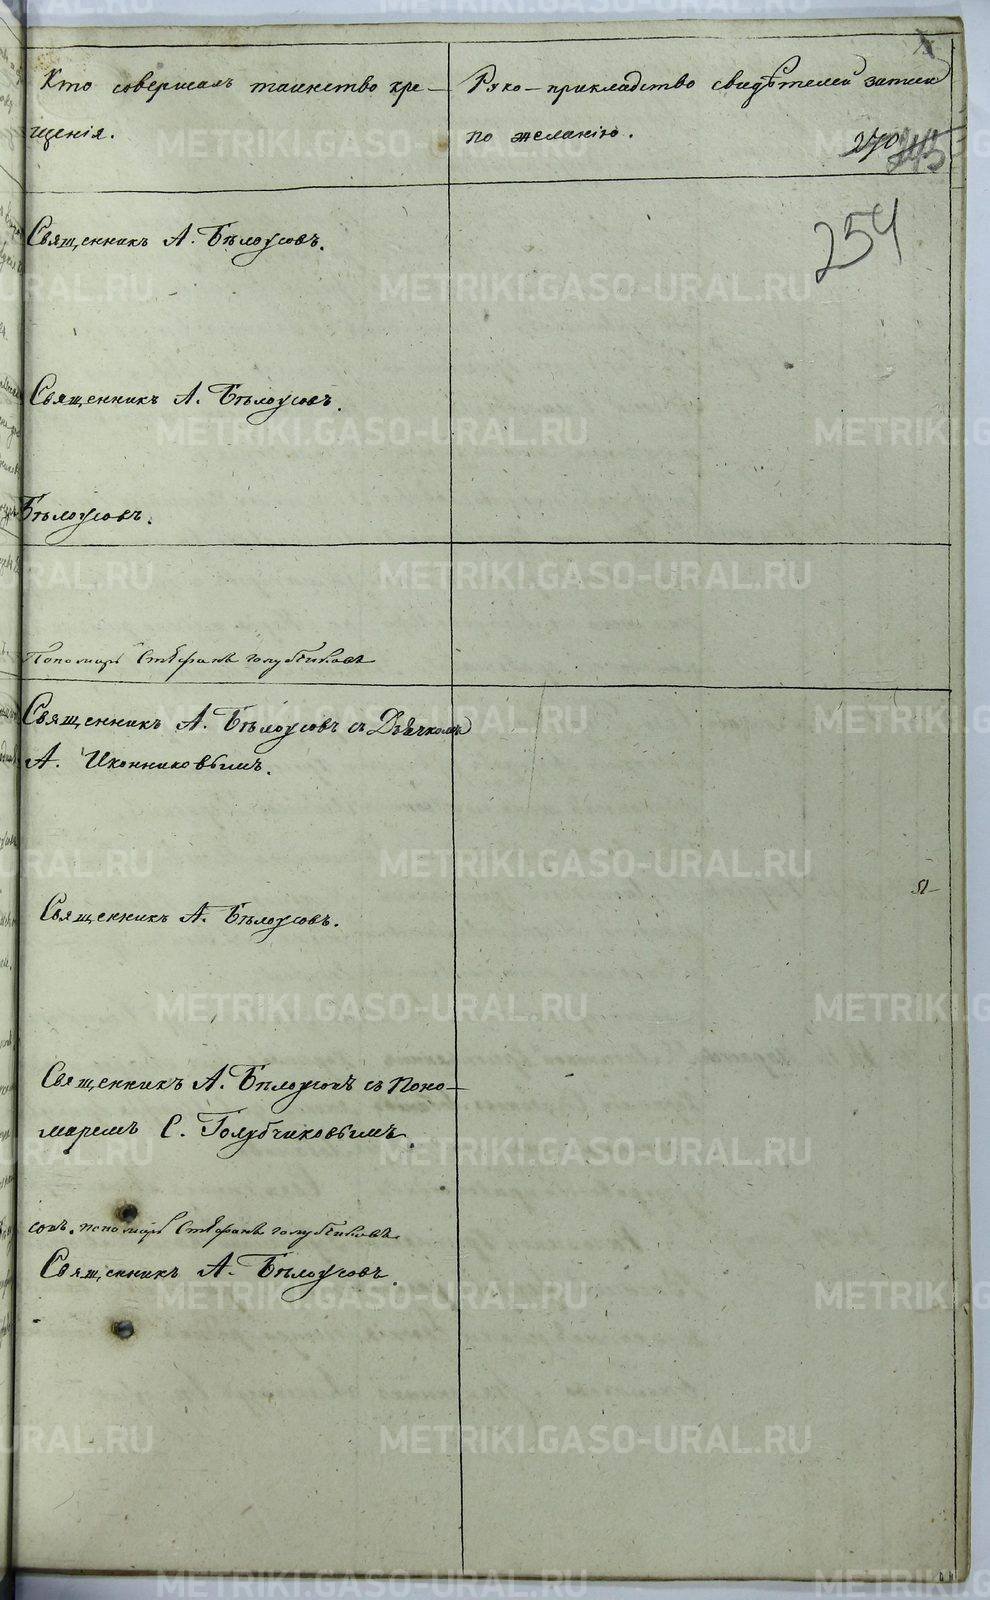 Кто совершалъ таинство кре-
щенія.
Руко-прикладство свидѣтелей записи
по желанію.
270
245
254
Священникъ А. Бѣлоусовъ.
Священникъ А. Бѣлоусовъ.
Бѣлоусовъ.
Пономарь Стефанъ Голубчиковъ
Священникъ А. Бѣлоусовъ съ Дьячкомъ
А. Иконниковымъ.
Священникъ А. Бѣлоусовъ.
Священникъ А. Бѣлоусовъ съ Поно-
маремъ С. Голубчиковымъ.
совъ. пономарь Стефанъ Голубчиковъ
Священникъ А. Бѣлоусовъ.
METRIKI.GASO-URAL.RU